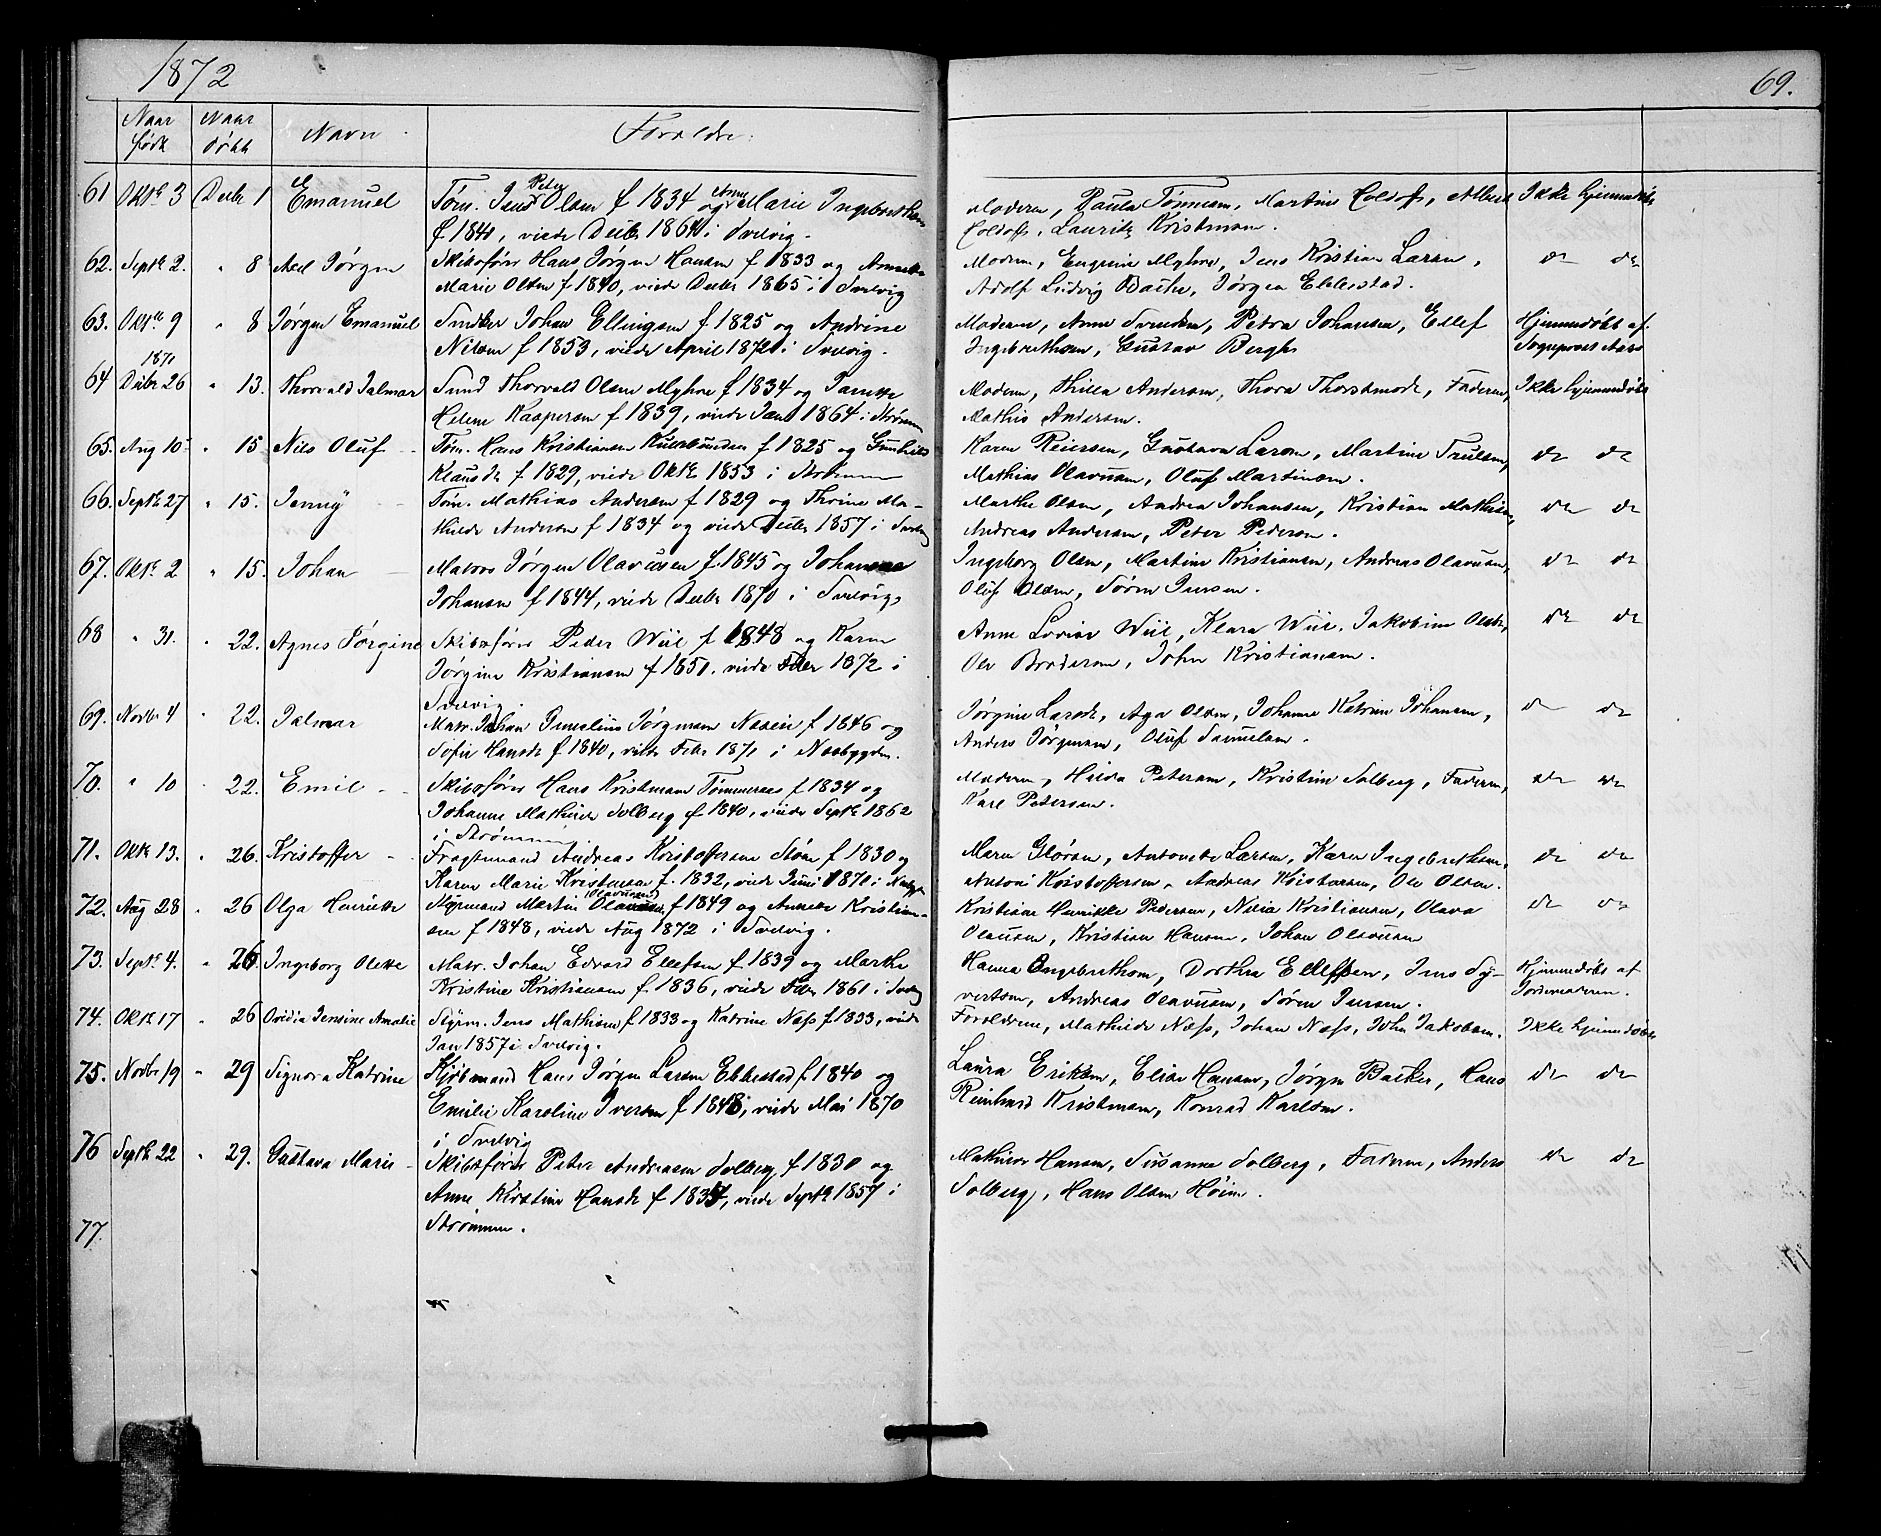 1872
69.
Naar født
Naar døbt
Navn
Forældre.
61 Oktr 3 Decbr 1 Emanuel Tøm. Jens Peter Olsen f 1834 og Anne Marie Ingebrethsen
f 1840, viede Decbr 1864 i Svelvig.
Moderen, Paula Tønnesen, Martine Coldoff, Albert
Coldoff, Lauritz Kristensen.
Ikke hjemmedøbt
62. Septbr 2. " 8 Axel Jørgen Skibsfører Hans Jørgen Hansen f 1833 og Annette
Marie Olsen f 1840, viede Decbr 1865 i Svelvig
Moderen, Eugenie Myhre, Jens Kristian Larsen,
Adolf Ludvig Backe, Jørgen Ebbestad.
do do
63. Oktr 9 " 8 Jørgen Emanuel Snedker Johan Ellingsen f. 1825 og Andrine
Nilsen f 1853, viede April 1872 i Svelvig.
Moderen, Anne Svendsen, Petra Johansen, Ellef
Ingebrethsen, Gustav Bergh
Hjemmedøbt af
Sogneprest Aars
1871
64 Decbr 26 " 13. Thorvald Jalmar Smed Thorvald Olsen Myhre f 1834 og Janette
Helene Kaspersen f 1839, viede Jan 1864 i Strømm
Moderen, Thilla Andersen, Thora Thorstensdr, Faderen,
Mathis Andersen.
Ikke hjemmedøbt
65. Aug 10 " 15 Nils Oluf Tøm. Hans Kristiansen f 1825 og Gunhild
Klausdr f 1829, viede Oktr 1853 i Strømmen
Karen Reiersen, Gustava Larsen, Martine Trulsen,
Mathias Olavesen, Oluf Martinsen.
do do
66. Septbr 27 " 15. Jenny Tøm. Mathias Andersen f 1829 og Thrine Ma-
thilde Andersen f 1834 og viede Decbr 1857 i Svelvig
Marthe Olsen, Andrea Johansen, Kristian Mathisen,
Andreas Andersen, Peter Pedersen.
do do
67. Oktr. 2 " 15. Johan Matros Jørgen Olavesen f. 1845 og Johanne
Johansen f 1844, viede Decbr 1870 i Svelvig
Ingeborg Olsen, Martine Kristiansen, Andreas Olavesen,
Oluf Olsen, Søren Iversen.
do do
68 " 31. " 22. Agnes Jørgine Skibsfører Peder Wiil f 1848 og Karen
Jørgine Kristiansen f 1850, viede Febr 1872 i
Svelvig.
Anne Lovise Wiil, Klara Wiil, Jakobine Olsen,
Ole Brodersen, John Kristiansen.
do do
69. Novbr 4 " 22. Jalmar Matr. Johan Jørgensen f 1846 og
Sofie Hansdr f. 1840, viede Febr 1871 i Næsbygden.
Jørgine Larsdr, Aga Olsen, Johanne Katrine Johansen,
Anders Jørgensen, Oluf Samuelsen.
do do
70. " 10 " 22. Emil Skibsfører Hans Kristensen Tømmeraas f 1834 og
Johanne Mathilde Solberg f 1840, viede Septbr 1862
i Strømmen
Moderen, Hilda Petersen, Kristine Solberg, Faderen,
Karl Petersen.
do do
71. Oktr 13. " 26. Kristoffer Fragtemand Andreas Kristoffersen f 1830 og
Karen Marie Kristensen f. 1832, viede Juni 1871 i
Maren Glørsen, Antonette Larsen, Karen Ingebrethsen,
Antoni Kristoffersen, Andreas Kristensen, Ole Olsen.
do do
72. Aug 28 " 26 Olga Henriette Styrmand Martin Olavesen f 1849 og Annette Kristian-
sen f 1848, viede Aug 1872 i Svelvig.
Kristiane Henrikke Pedersen, Kristiansen, Olava
Olausen, Kristian Hansen, Johan Olavesen
do do
73. Septbr 4. " 26 Ingeborg Olette Matr. Johan Edvard Ellefsen f 1839 og Marthe
Kristine Kristiansen f. 1836, viede Febr 1861 i Svelvig
Hanna Ingebrethsen, Dorthea Ellefsen, Jens Sy-
vertsen, Andreas Olavesen, Søren Iversen.
Hjemmedøbt af
Jordemoderen.
74. Oktr 17 " 26 Ovidia Jensine Amalie Styrm. Jens Mathisen f 1833 og Katrine Næss f 1833, viede
Jan 1857 i Svelvig.
Forældrene, Mathilde Næss, Johan Næss, John Jakobsen.
Ikke hjemmedøbt
75. Novbr 19 " 29 Signora Katrine Kjøbmand Hans Jørgen Larsen Ebbestad f. 1840 og
Emilie Karoline Iversen f 1848, viede Mai 1870
i Svelvig
Laura Eriksen, Elise Hansen, Jørgen Backe, Hans
Reinhard Kristensen, Konrad Karlsen.
do do
76 Septbr 22 " 29. Gustava Marie Skibsfører Peter Andreasen Solberg f. 1830 og
Anne Kirstine Hansdr f 1837, viede Septbr 1857 i
Strømmen.
Mathisen Hansen, Susanne Solberg, Faderen, Anders
Solberg, Hans Olsen Høien.
do do
77.